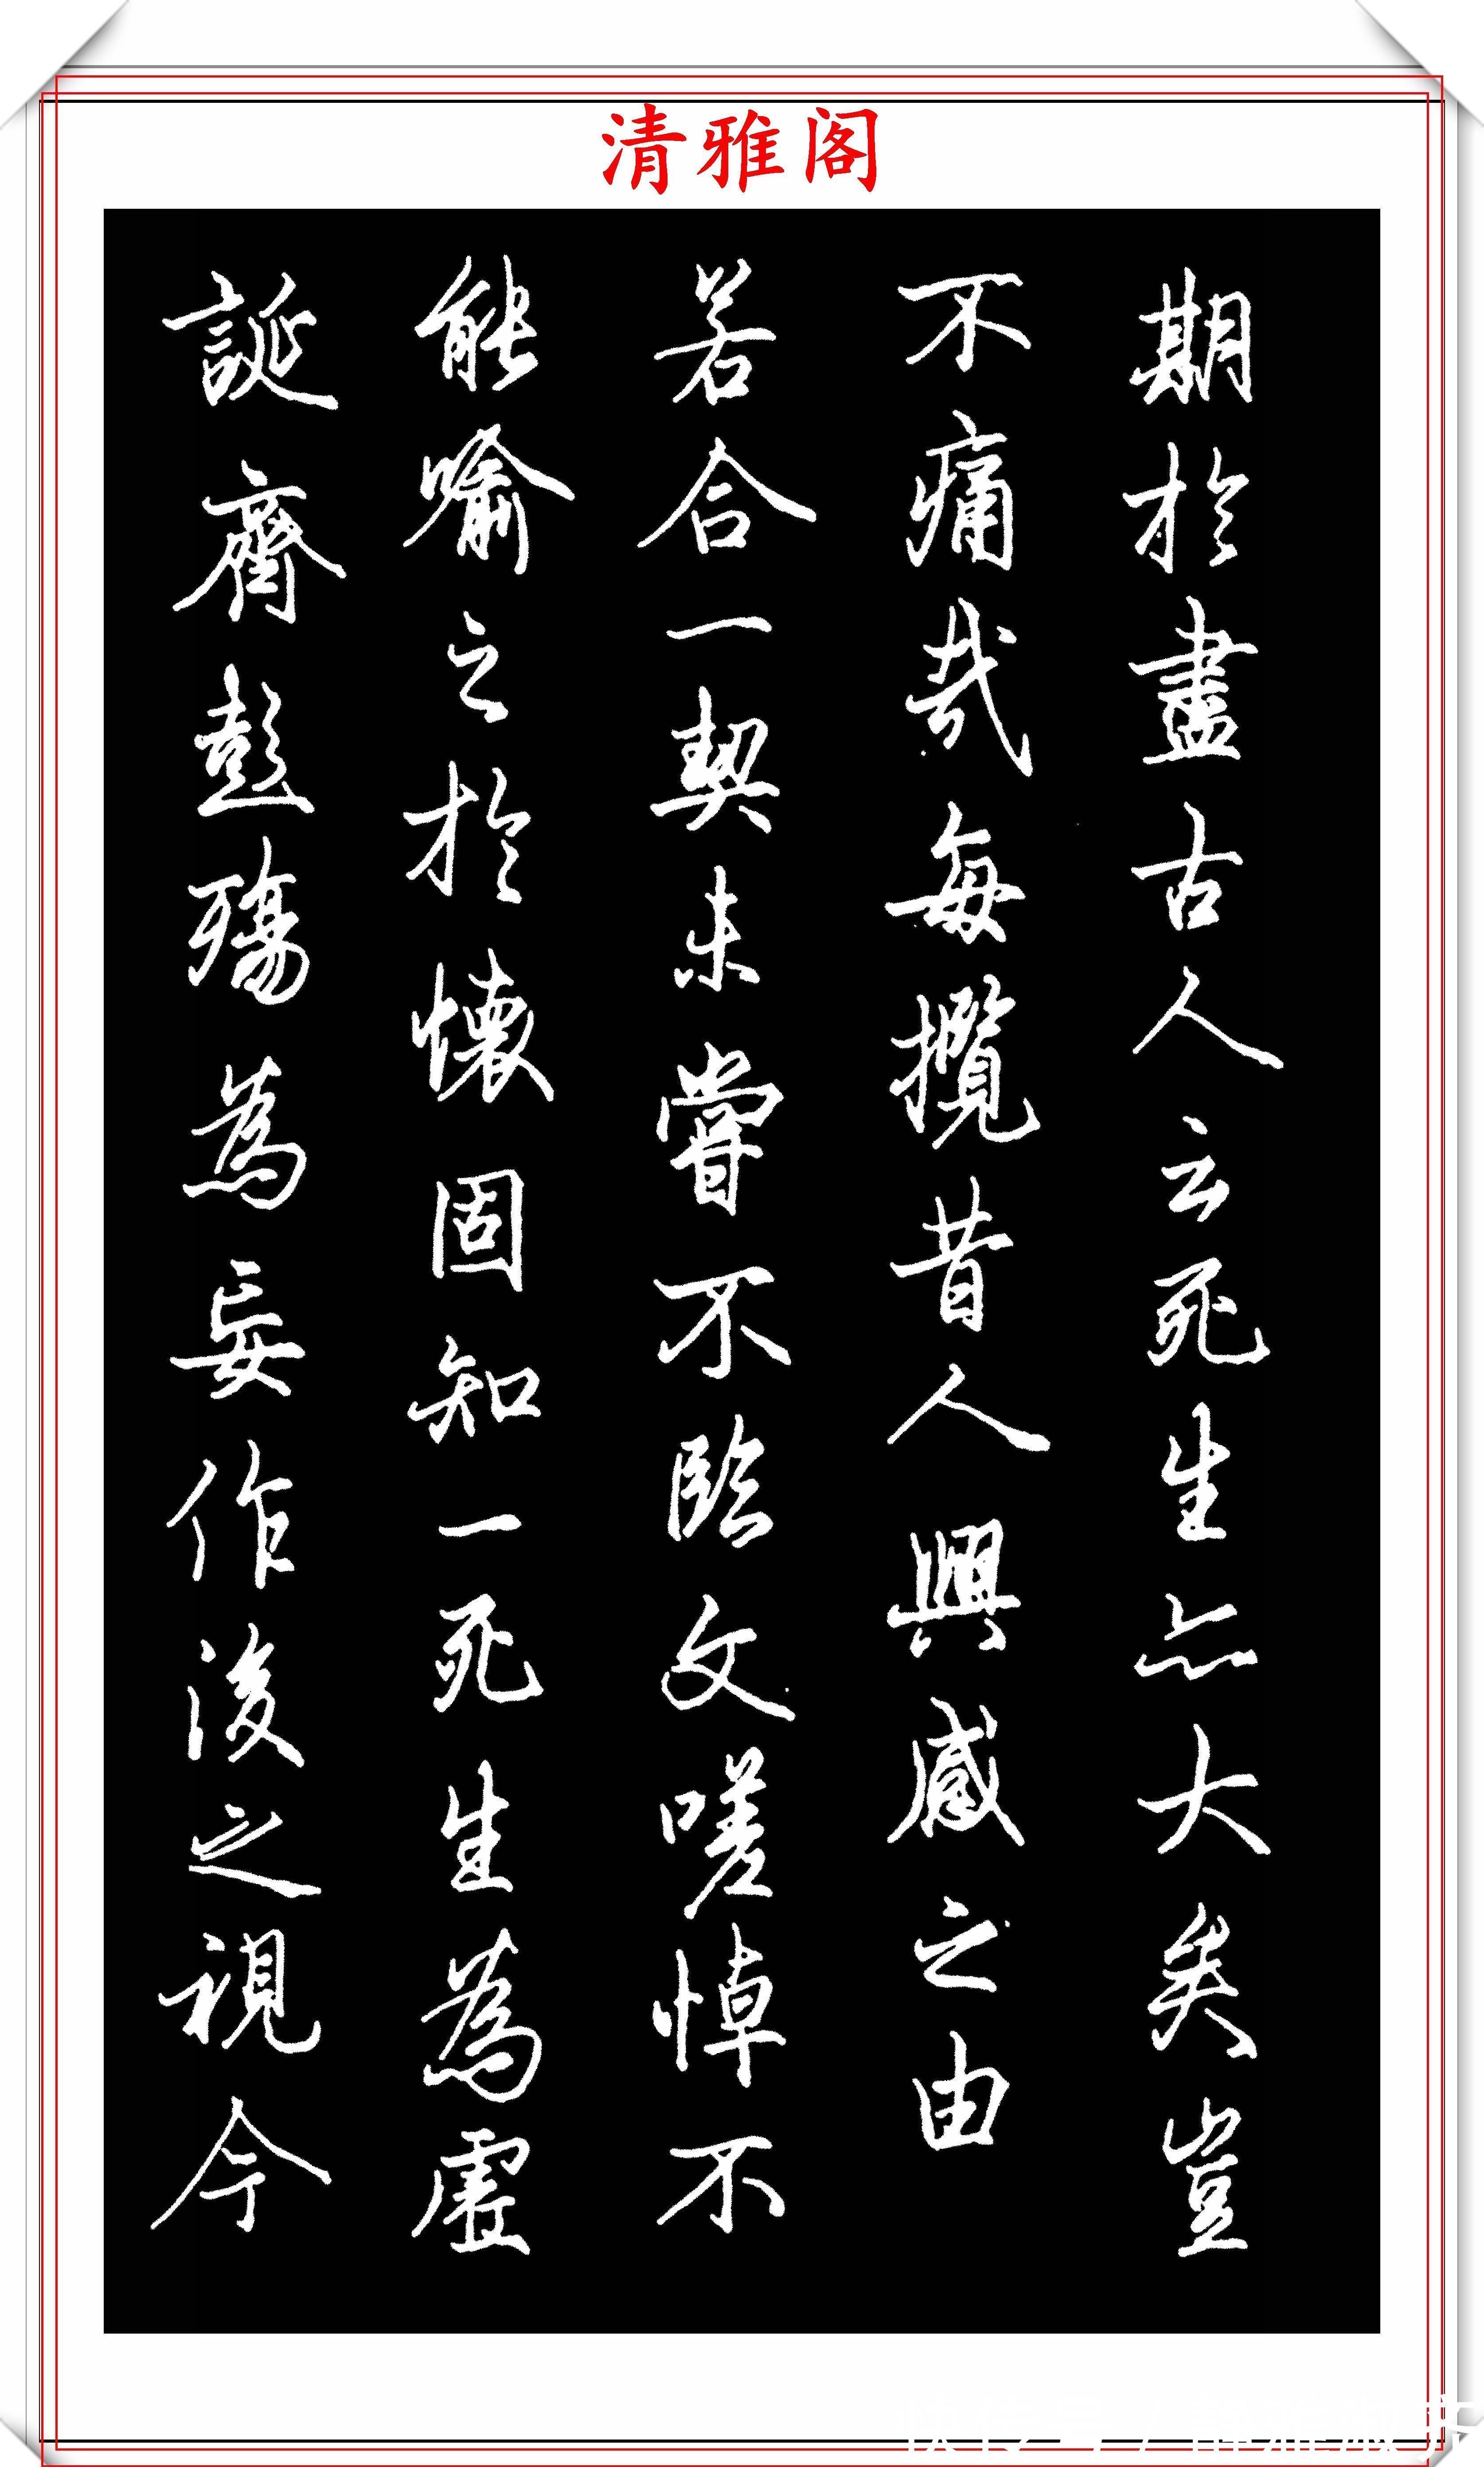 清雅阁
期於盡古人云死生亦大矣豈
不痛哉每攬昔人興感之由
若合一契未嘗不臨文嗟悼不
能喻之於懷固知一死生為虛
誕齊彭殤為妄作後之視今